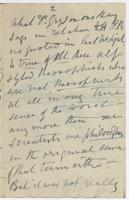 2
What Dr Gryzmonsky
says in relation to
is true of all those self
styled Theosophists who
are not Theosophists
at all in any true
sense of the word —
any more than
Scientists are Philosophers
in the original sense
of that term either —
But it was not really